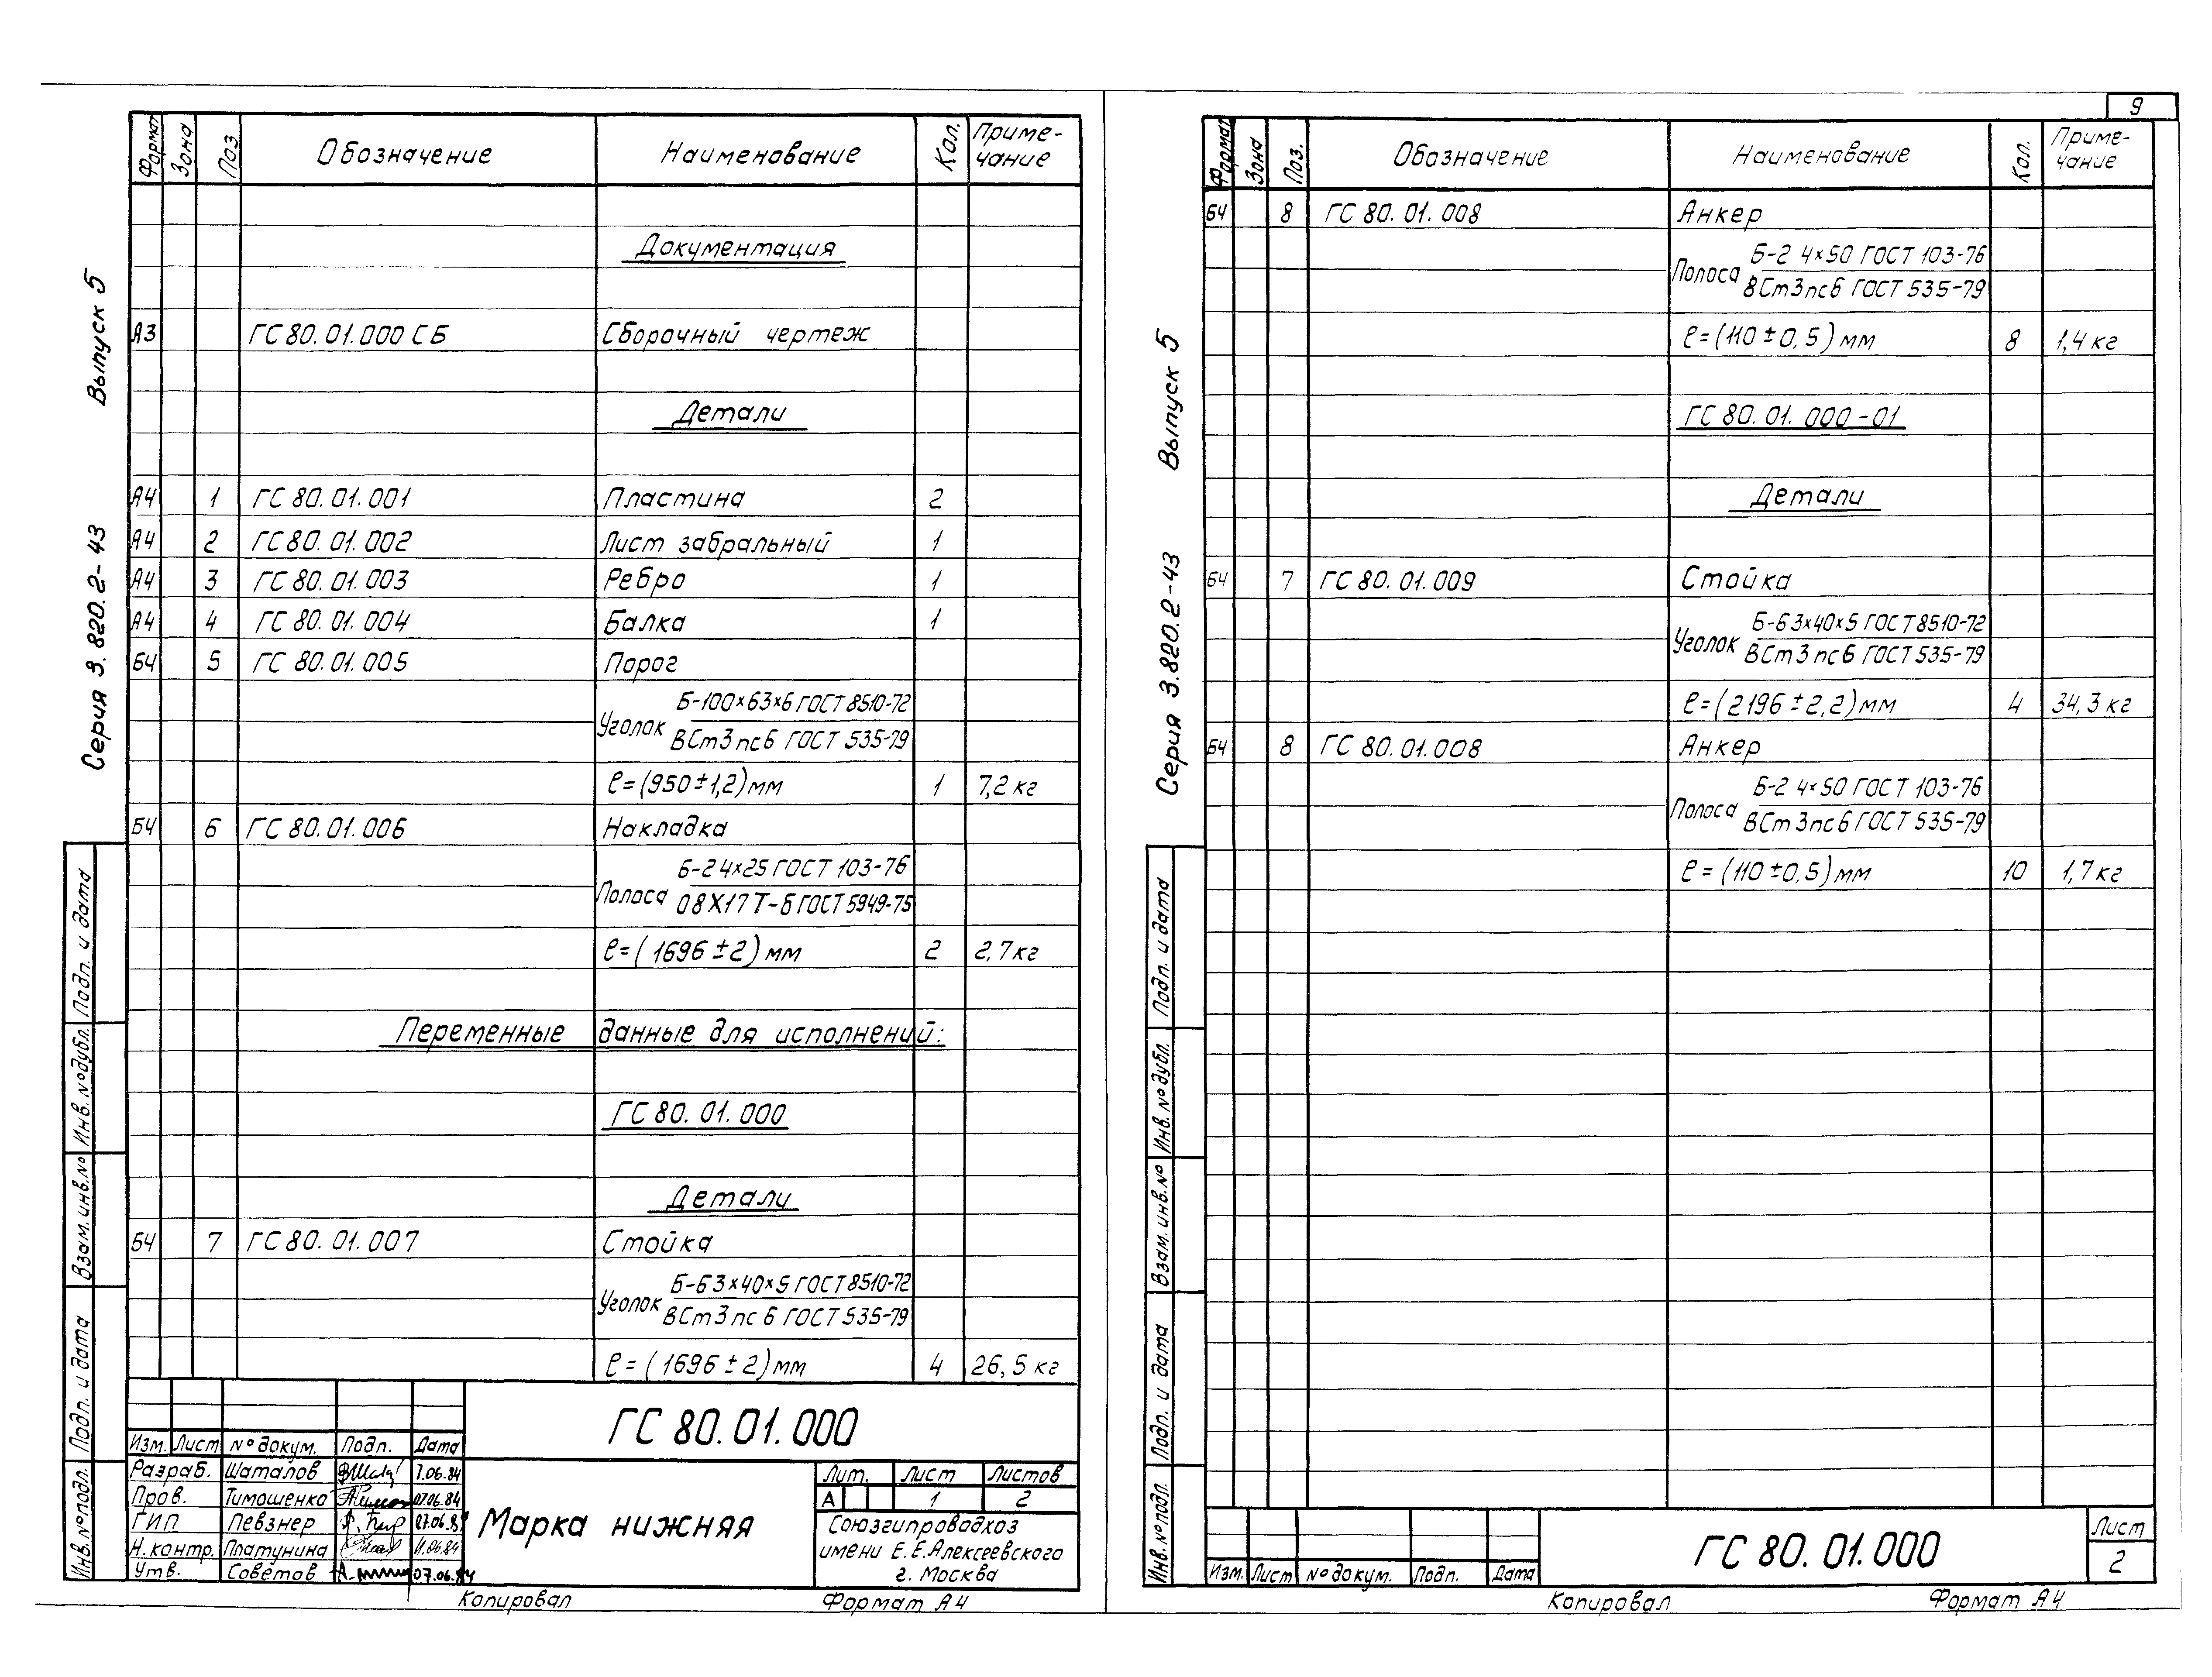 9
Выпуск 5
Серия 3.820.2-43
Формат Зона Поз Обозначение Наименование Кол. Примечание
Документация
А3 ГС 80.01.000 СБ Сборочный чертеж
Детали
А4 1 ГС 80.01.001 Пластина 2
А4 2 ГС 80.01.002 Лист забральный 1
А4 3 ГС 80.01.003 Ребро 1
А4 4 ГС 80.01.004 Балка 1
БЧ 5 ГС 80.01.005 Порог
Б-100×63×6 ГОСТ 8510-72
Уголок
ВСт3пс6 ГОСТ 535-79
ℓ=(950±1,2)мм 1 7,2 кг
БЧ 6 ГС 80.01.006 Накладка
Б-2 4×25 ГОСТ 103-76
Полоса
08Х17Т-б ГОСТ 5949-75
ℓ=(1696±2)мм 2 2,7 кг
Переменные данные для исполнений:
ГС 80.01.000
Детали
БЧ 7 ГС 80.01.007 Стойка
Б-63×40×5 ГОСТ 8510-72
Уголок
ВСт3пс6 ГОСТ 535-79
ℓ=(1696±2)мм 4 26,5 кг
Подп. и дата
Инв.№дубл.
Взам.инв.№
Подп. и дата
Инв.№подл.
ГС 80.01.000
Изм. Лист № докум. Подп. Дата
Разраб. Шаталов 7.06.84
Пров. Тимошенко 07.06.84
ГИП Певзнер 07.06.84
Н.контр. Платунина 11.06.84
Утв. Советов 07.06.84
Марка нижняя
Лит. Лист Листов
А 1 2
Союзгипроводхоз
имени Е.Е.Алексеевского
г. Москва
Копировал Формат А4
Выпуск 5
Серия 3.820.2-43
Формат Зона Поз. Обозначение Наименование Кол. Примечание
БЧ 8 ГС 80.01.008 Анкер
Б-2 4×50 ГОСТ 103-76
Полоса
ВСт3пс6 ГОСТ 535-79
ℓ=(110±0,5)мм 8 1,4 кг
ГС 80.01.000-01
Детали
БЧ 7 ГС 80.01.009 Стойка
Б-63×40×5 ГОСТ 8510-72
Уголок
ВСт3пс6 ГОСТ 535-79
ℓ=(2196±2,2)мм 4 34,3 кг
БЧ 8 ГС 80.01.008 Анкер
Б-2 4×50 ГОСТ 103-76
Полоса
ВСт3пс6 ГОСТ 535-79
ℓ=(110±0,5)мм 10 1,7 кг
Подп. и дата
Инв.№дубл.
Взам.инв.№
Подп. и дата
Инв.№подл.
Изм. Лист № докум. Подп. Дата
ГС 80.01.000
Лист
2
Копировал Формат А4